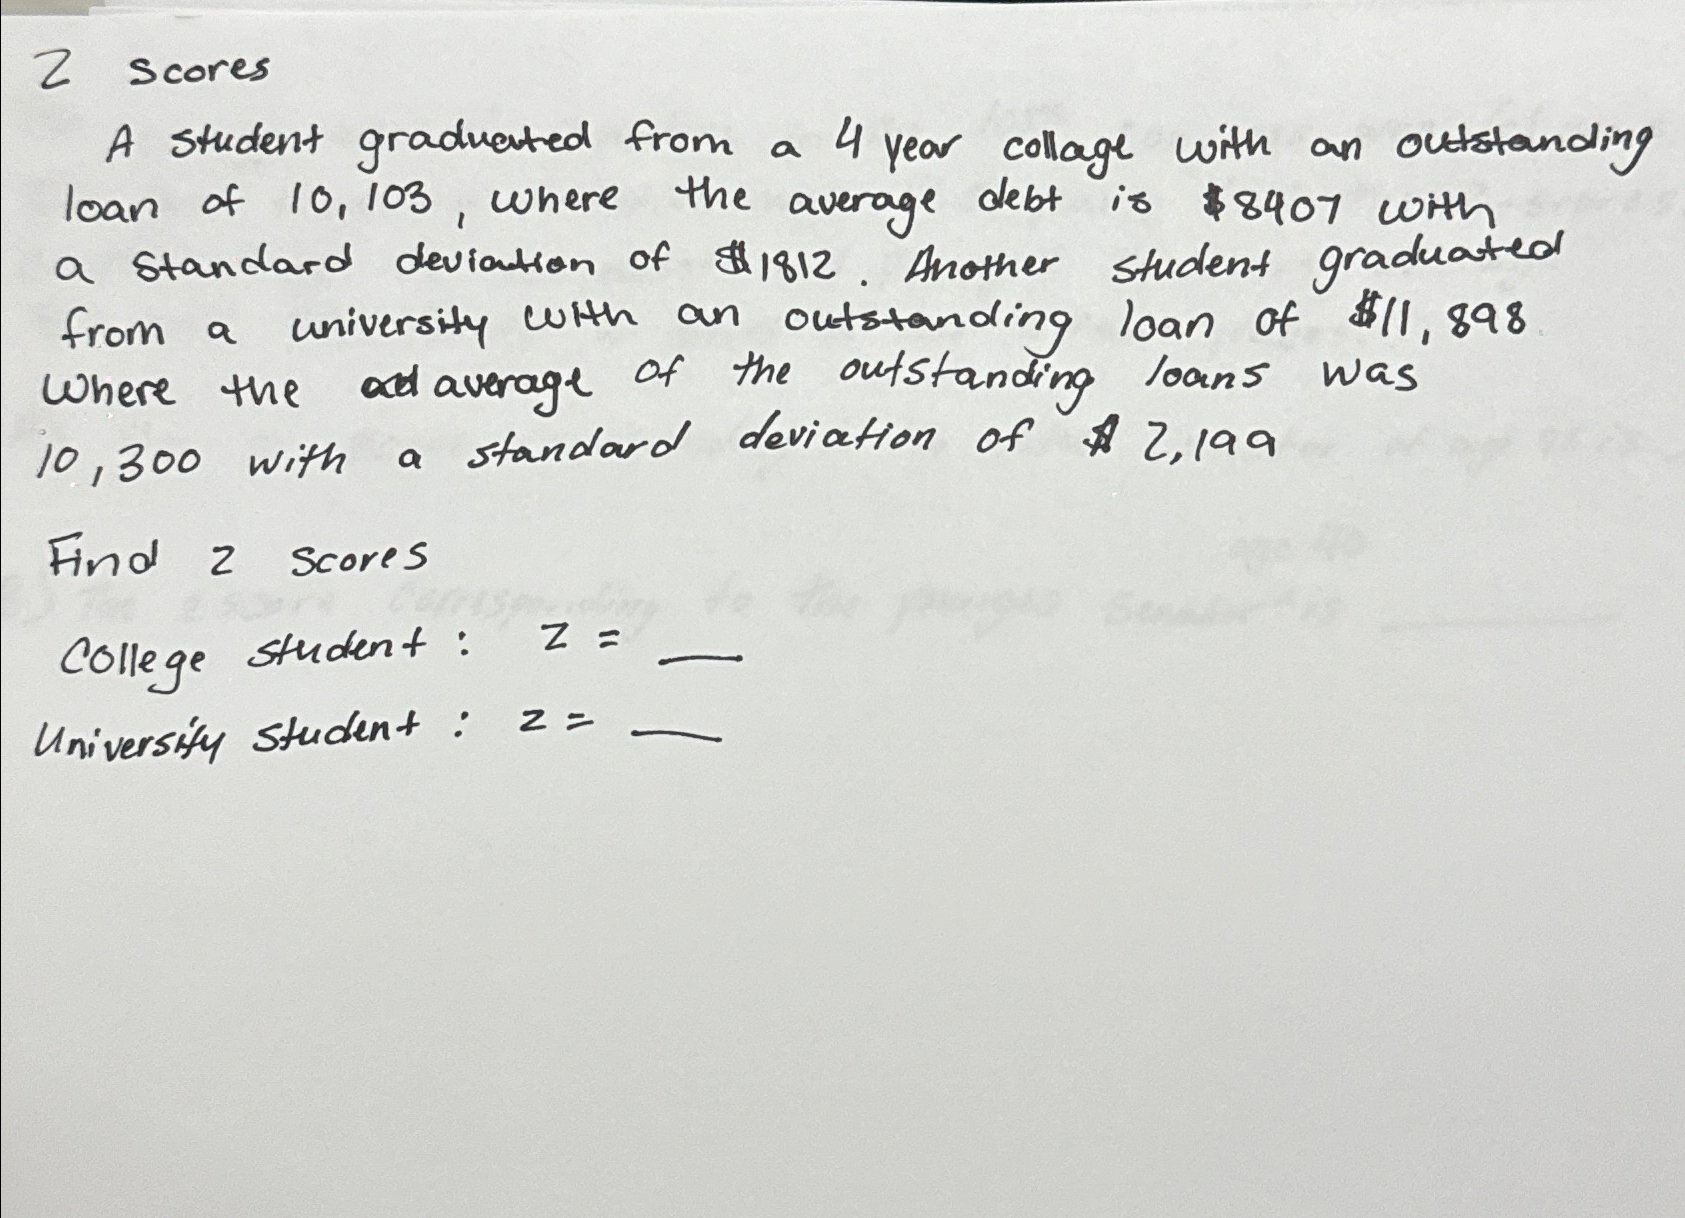 Z scores
A student graduated from a 4 year collage with an outstanding
loan of 10,103, where the average debt is $8407 with
a standard deviation of $1812. Another student graduated
from a university with an outstanding loan of $11,898.
Where the average of the outstanding loans was
10,300 with a standard deviation of $ 2,199
Find z scores
College student : Z = __
University student : z = __